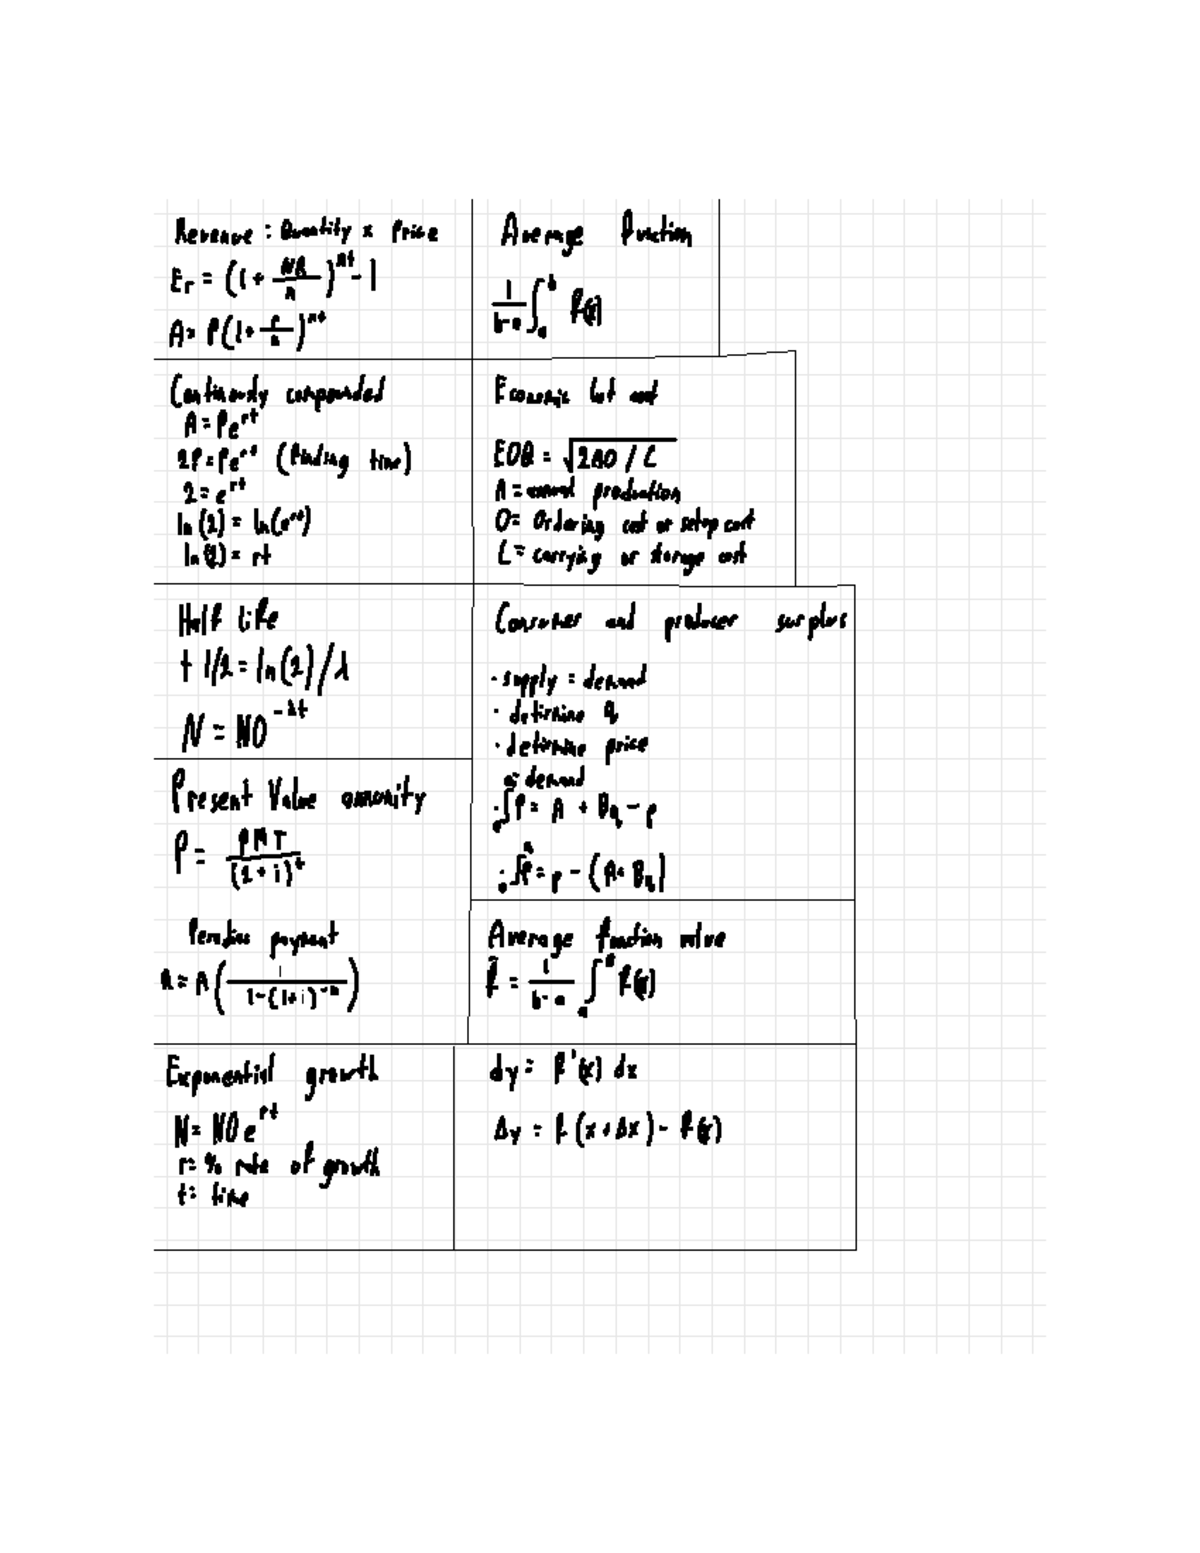 Revenue : Quantity x Price
Er = (1 + NR/n)^nt - 1
A = P(1 + r/n)^nt
Average function
1/b-a ∫_a^b f(x)
Continously compounded
A = Pe^rt
2P = Pe^rt (finding time)
2 = e^rt
ln(2) = ln(e^rt)
ln(2) = rt
Economic lot
EOQ = √2AO / C
A = annual production
O = Ordering cost or setup cost
C = carrying or storage cost
Half life
t 1/2 = ln(2)/λ
N = NO^-λt
Consumer and producer surplus
· supply = demand
· determine q
· determine price
demand
· ∫P = A + Bq - p
· ∫P = p - (A + Bq)
Present Value annuity
P = PMT/(1+i)^t
payment
R = A(1/1-(1+i)^-n)
Average function value
f̄ = 1/b-a ∫_a^b f(x)
Exponential growth
N = NOe^rt
r = % rate of growth
t = time
dy = f'(x) dx
Δy = f(x+Δx) - f(x)